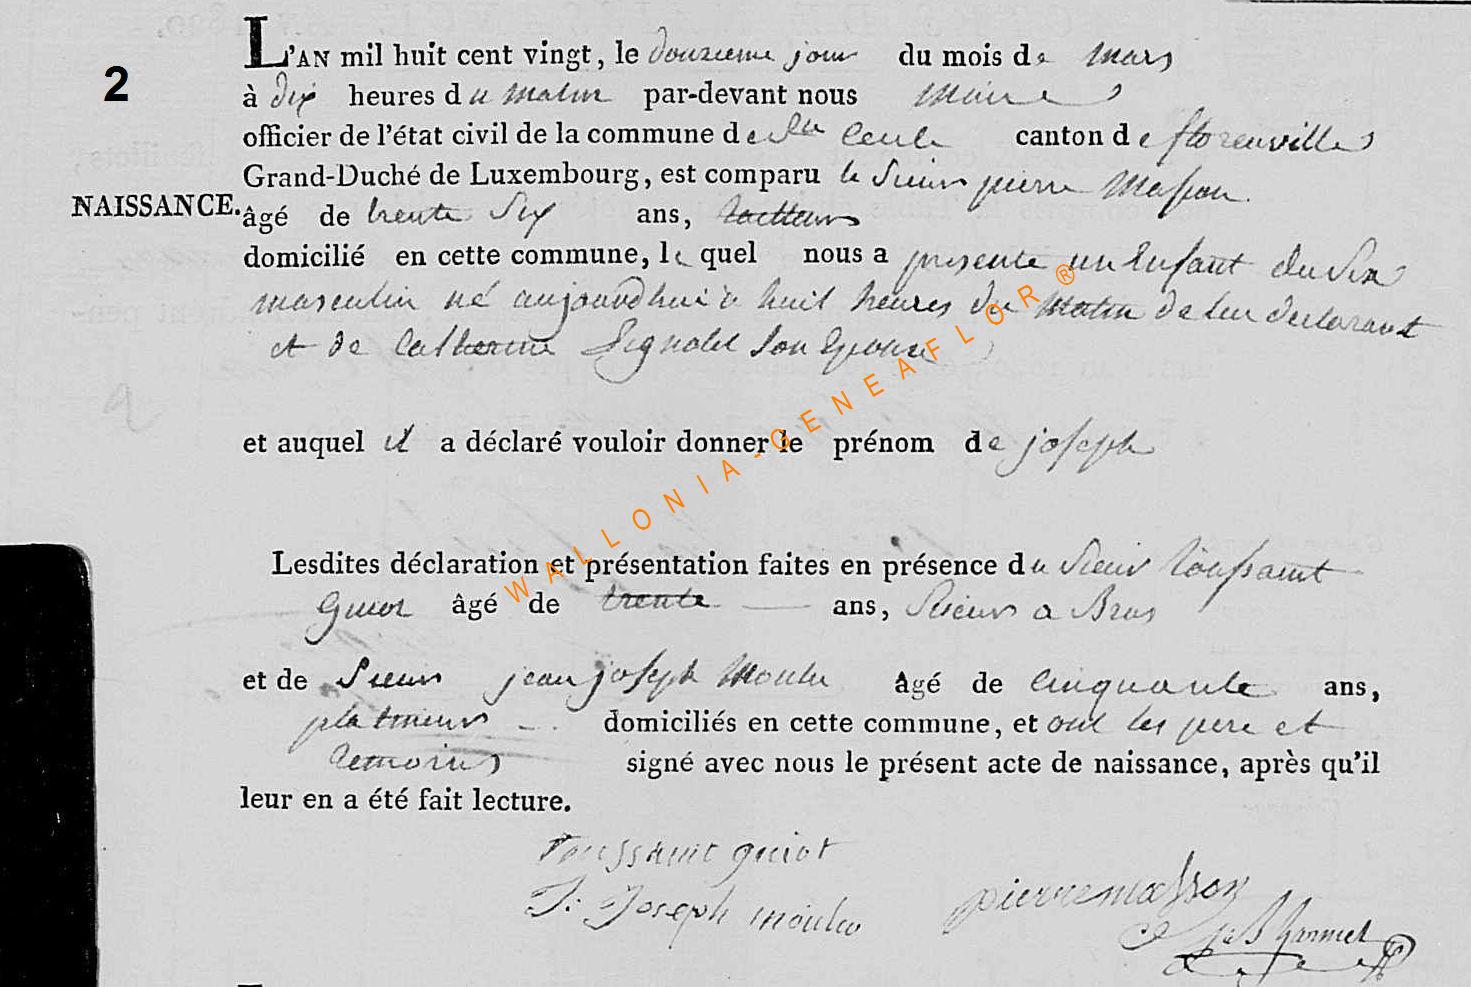 2
L'AN mil huit cent vingt, le douzieme jour du mois de mars
à dix heures du matin par-devant nous Maire
officier de l'état civil de la commune de Ste Cecile canton de florenville
Grand-Duché de Luxembourg, est comparu le Sieur pierre Masson
NAISSANCE.
âgé de trente Six ans,
domicilié en cette commune, le quel nous a presente un Enfant du Sex
masculin né aujourdhui a huit heures du Matin de lui declarant
et de Catherine Son Epouse
et auquel il a déclaré vouloir donner le prénom de joseph
Lesdites déclaration et présentation faites en présence du Sieur Toussaint
Guiot âgé de trente ans,
et de Sieur jean joseph Moulu âgé de Cinquante ans,
platineur domiciliés en cette commune, et ont les pere et
temoins signé avec nous le présent acte de naissance, après qu'il
leur en a été fait lecture.
Toussaint guiot
J: Joseph moulu
pierre masson
WALLONIA-GENEAFLOR ®